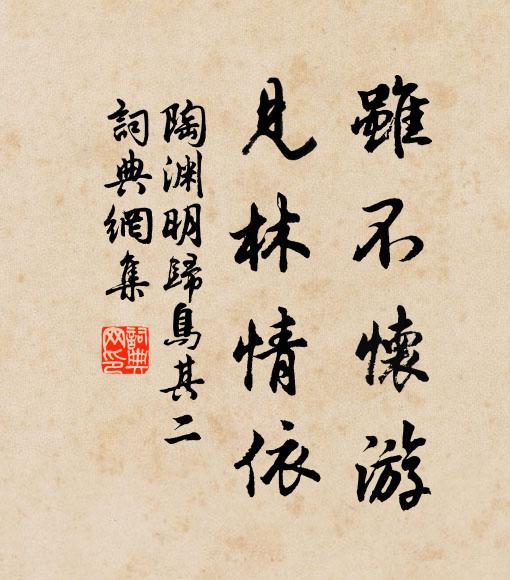 雖不懷游
見林情依
陶渊明歸鳥其二
詞典網集
詞典網印